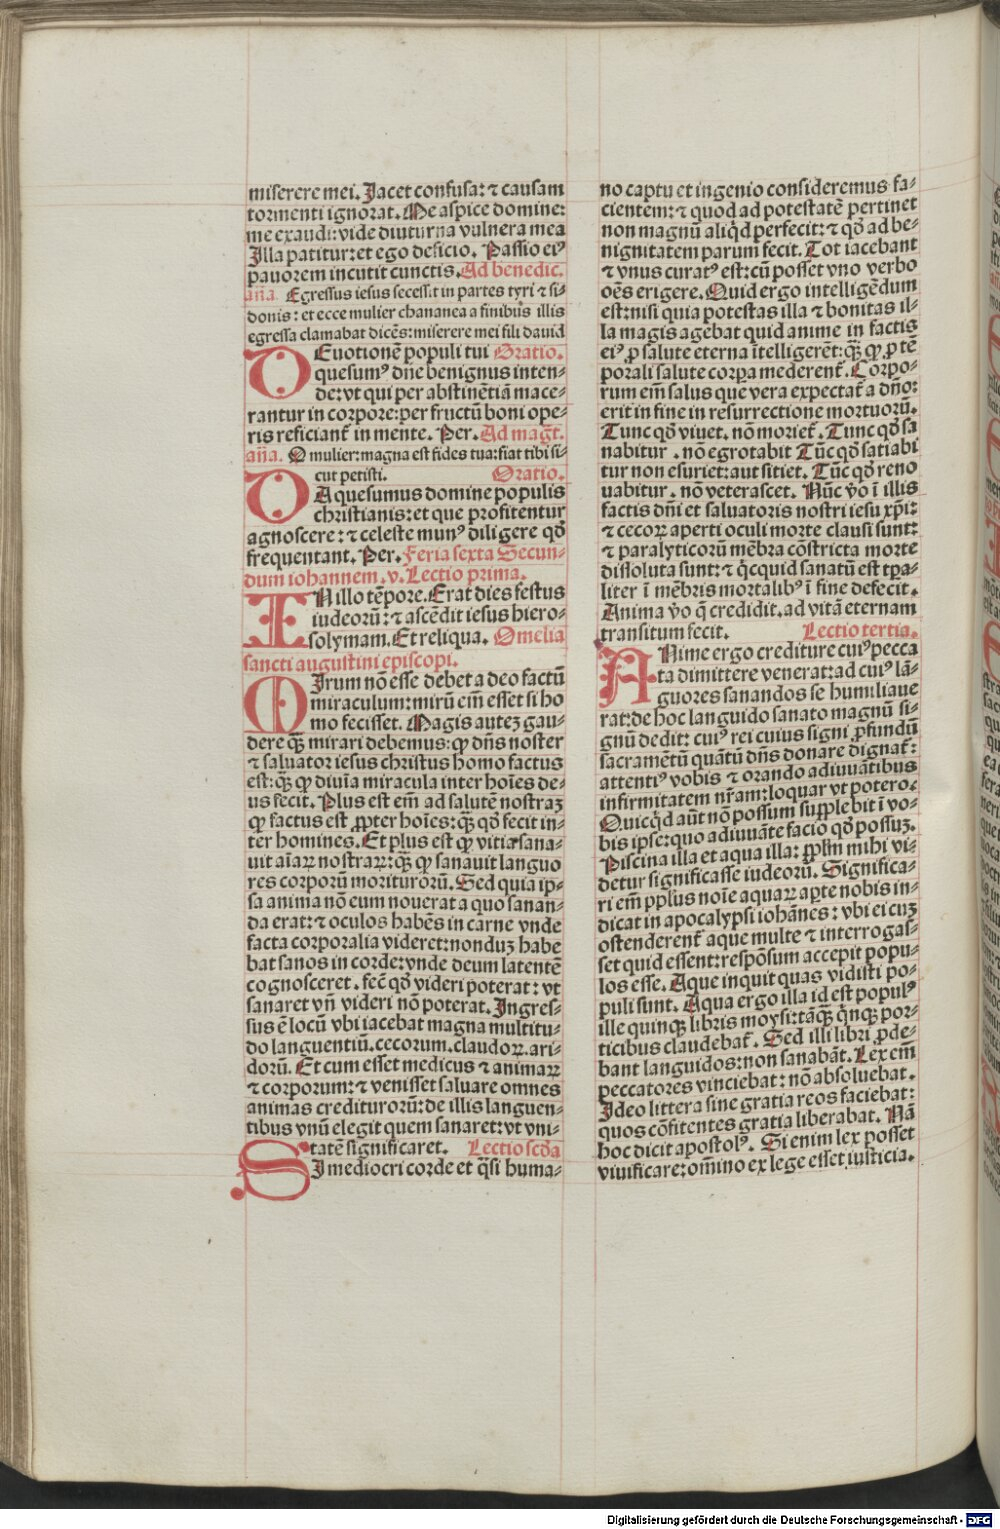 miserere mei. Jacet confusa: ⁊ causam
tormenti ignorat. Me aspice domine:
me exaudi: vide diuturna vulnera mea
Illa patitur: et ego deficio. Passio eiꝰ
pauorem incutit cunctis. Ad benedic.
añā. Egressus iesus secessit in partes tyri ⁊ si⸗
donis: et ecce mulier chananea a finibus illis
egressa clamabat dicēs: miserere mei fili dauid
DEuotionē populi tui Oratio.
quesumꝰ dn̄e benignus inten⸗
de: vt qui per abstinētiā mace⸗
rantur in corpore: per fructū boni ope⸗
ris reficiant᷑ in mente. Per. Ad mag̅t.
añā. O mulier: magna est fides tua: fiat tibi si⸗
cut petisti. Oratio.
DA quesumus domine populis
christianis: et que profitentur
agnoscere: ⁊ celeste munꝰ diligere qd̄
frequentant. Per. Feria sexta Secun⸗
dum iohannem. v. Lectio prima.
IN illo tēpore. Erat dies festus
iudeorū: ⁊ ascēdit iesus hiero⸗
solymam. Et reliqua. Omelia
sancti augustini episcopi.
MIrum nō esse debet a deo factū
miraculum: mirū em̄ esset si ho
mo fecisset. Magis autez gau⸗
dere qȝ mirari debemus: ꝙ dn̄s noster
⁊ saluator iesus christus homo factus
est: qȝ ꝙ diuīa miracula inter hoīes de⸗
us fecit. Plus est em̄ ad salutē nostraz
ꝙ factus est ꝓpter hoīes: qȝ qd̄ fecit in⸗
ter homines. Et plus est ꝙ vitia sana⸗
uit aīaꝝ nostraꝝ: qȝ ꝙ sanauit languo
res corporū moriturorū. Sed quia ip⸗
sa anima nō eum nouerat a quo sanan⸗
da erat: ⁊ oculos habēs in carne vnde
facta corporalia videret: nonduz habe
bat sanos in corde: vnde deum latentē
cognosceret. fec̄ qd̄ videri poterat: vt
sanaret vn̄ videri nō poterat. Ingres⸗
sus ē locū vbi iacebat magna multitu⸗
do languentiū. cecorum. claudoꝝ. ari⸗
dorū. Et cum esset medicus ⁊ animaꝝ
⁊ corporum: ⁊ venisset saluare omnes
animas crediturorū: de illis languen⸗
tibus vnū elegit quem sanaret: vt vni⸗
tatē significaret. Lectio scd̄a
SI mediocri corde et q̄si huma⸗
no captu et ingenio consideremus fa⸗
cientem: ⁊ quod ad potestatē pertinet
non magnū aliqd̄ perfecit: ⁊ qd̄ ad be⸗
nignitatem parum fecit. Tot iacebant
⁊ vnus curatꝰ est: cū posset vno verbo
oēs erigere. Quid ergo intelligēdum
est: nisi quia potestas illa ⁊ bonitas il⸗
la magis agebat quid anime in factis
eiꝰ ꝓ salute eterna ītelligerēt: qȝ ꝙ ꝓ tē
porali salute corpa mederent᷑. Corpo⸗
rum em̄ salus que vera expectat᷑ a dn̄o:
erit in fine in resurrectione mortuorū.
Tunc qd̄ viuet. nō moriet᷑. Tunc qd̄ sa
nabitur. nō egrotabit Tūc qd̄ satiabi
tur non esuriet: aut sitiet. Tūc qd̄ reno
uabitur. nō veterascet. Nūc v̄o ī illis
factis dn̄i et saluatoris nostri iesu xp̄i:
⁊ cecoꝝ aperti oculi morte clausi sunt:
⁊ paralyticorū mēbra cōstricta morte
dissoluta sunt: ⁊ q̇cquid sanatū est tpa⸗
liter ī mēbris mortalibꝰ ī fine defecit.
Anima v̄o q̄ credidit. ad vitā eternam
transitum fecit. Lectio tertia.
ANime ergo crediture cuiꝰ pecca
ta dimittere venerat: ad cuiꝰ lā⸗
guores sanandos se humiliaue
rat: de hoc languido sanato magnū si⸗
gnū dedit: cuiꝰ rei cuius signi ꝓfundū
sacramētū quātū dn̄s donare dignat᷑:
attentiꝰ vobis ⁊ orando adiuuātibus
infirmitatem nr̄am: loquar vt potero.
Quicq̇d aūt nō possum supplebit ī vo⸗
bis ipse: quo adiuuāte facio qd̄ possuz.
Piscina illa et aqua illa: pplm̄ mihi vi⸗
detur significasse iudeorū. Significa⸗
ri em̄ pplus noīe aquaꝝ apte nobis in⸗
dicat in apocalypsi iohānes: vbi ei cuz
ostenderent᷑ aque multe ⁊ interrogas⸗
set quid essent: respōsum accepit popu⸗
los esse. Aque inquit quas vidisti po⸗
puli sunt. Aqua ergo illa id est populꝰ
ille quinqȝ libris moysi: tāqȝ q̇nqȝ por⸗
ticibus claudebat᷑. Sed illi libri ꝓde⸗
bant languidos: non sanabāt. Lex em̄
peccatores vinciebat: nō absoluebat.
Ideo littera sine gratia reos faciebat:
quos cōfitentes gratia liberabat. Nā
hoc dicit apostolꝰ. Si enim lex posset
viuificare: om̄ino ex lege esset iusticia.
Digitalisierung gefördert durch die Deutsche Forschungsgemeinschaft - DFG